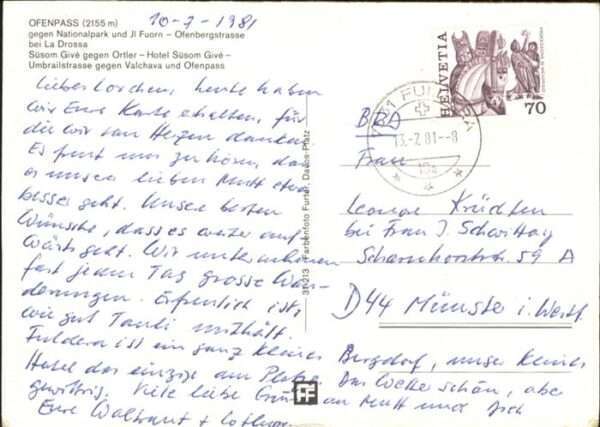 OFENPASS (2155 m)
gegen Nationalpark und Jl Fuorn – Ofenbergstrasse
bei La Drossa
Süsom Givè gegen Ortler – Hotel Süsom Givè –
Umbrailstrasse gegen Valchava und Ofenpass
10-7-1981
HELVETIA
70
13.-7.81-8
Liebe Lorchen, heute haben
wir Eure Karte erhalten, für
die wir von Herzen danken.
Es freut uns zu hören, das
es unser lieben Mutt etwas
besser geht. Unsere besten
Wünsche, dass es weiter auf-
wärts geht. Wir unternehmen
fast jeden Tag grosse Wan-
derungen. Erfreulich ist,
wie gut Tauli mithält.
Fuldera ist ein ganz kleines
Hotel das einzige am Platze.
gewittrig. Viele liebe Grüße an Mutt und Dich
Eure Waltraut + Lothar
31 213 Farbenfoto Furter, Davos-Platz
BRD
Frau
Leonore
bei Frau J.
Scharnhorststr. 59 A
D44 Münster i. Westf.
Bergdorf, unser kleines
Das Wetter schön, aber